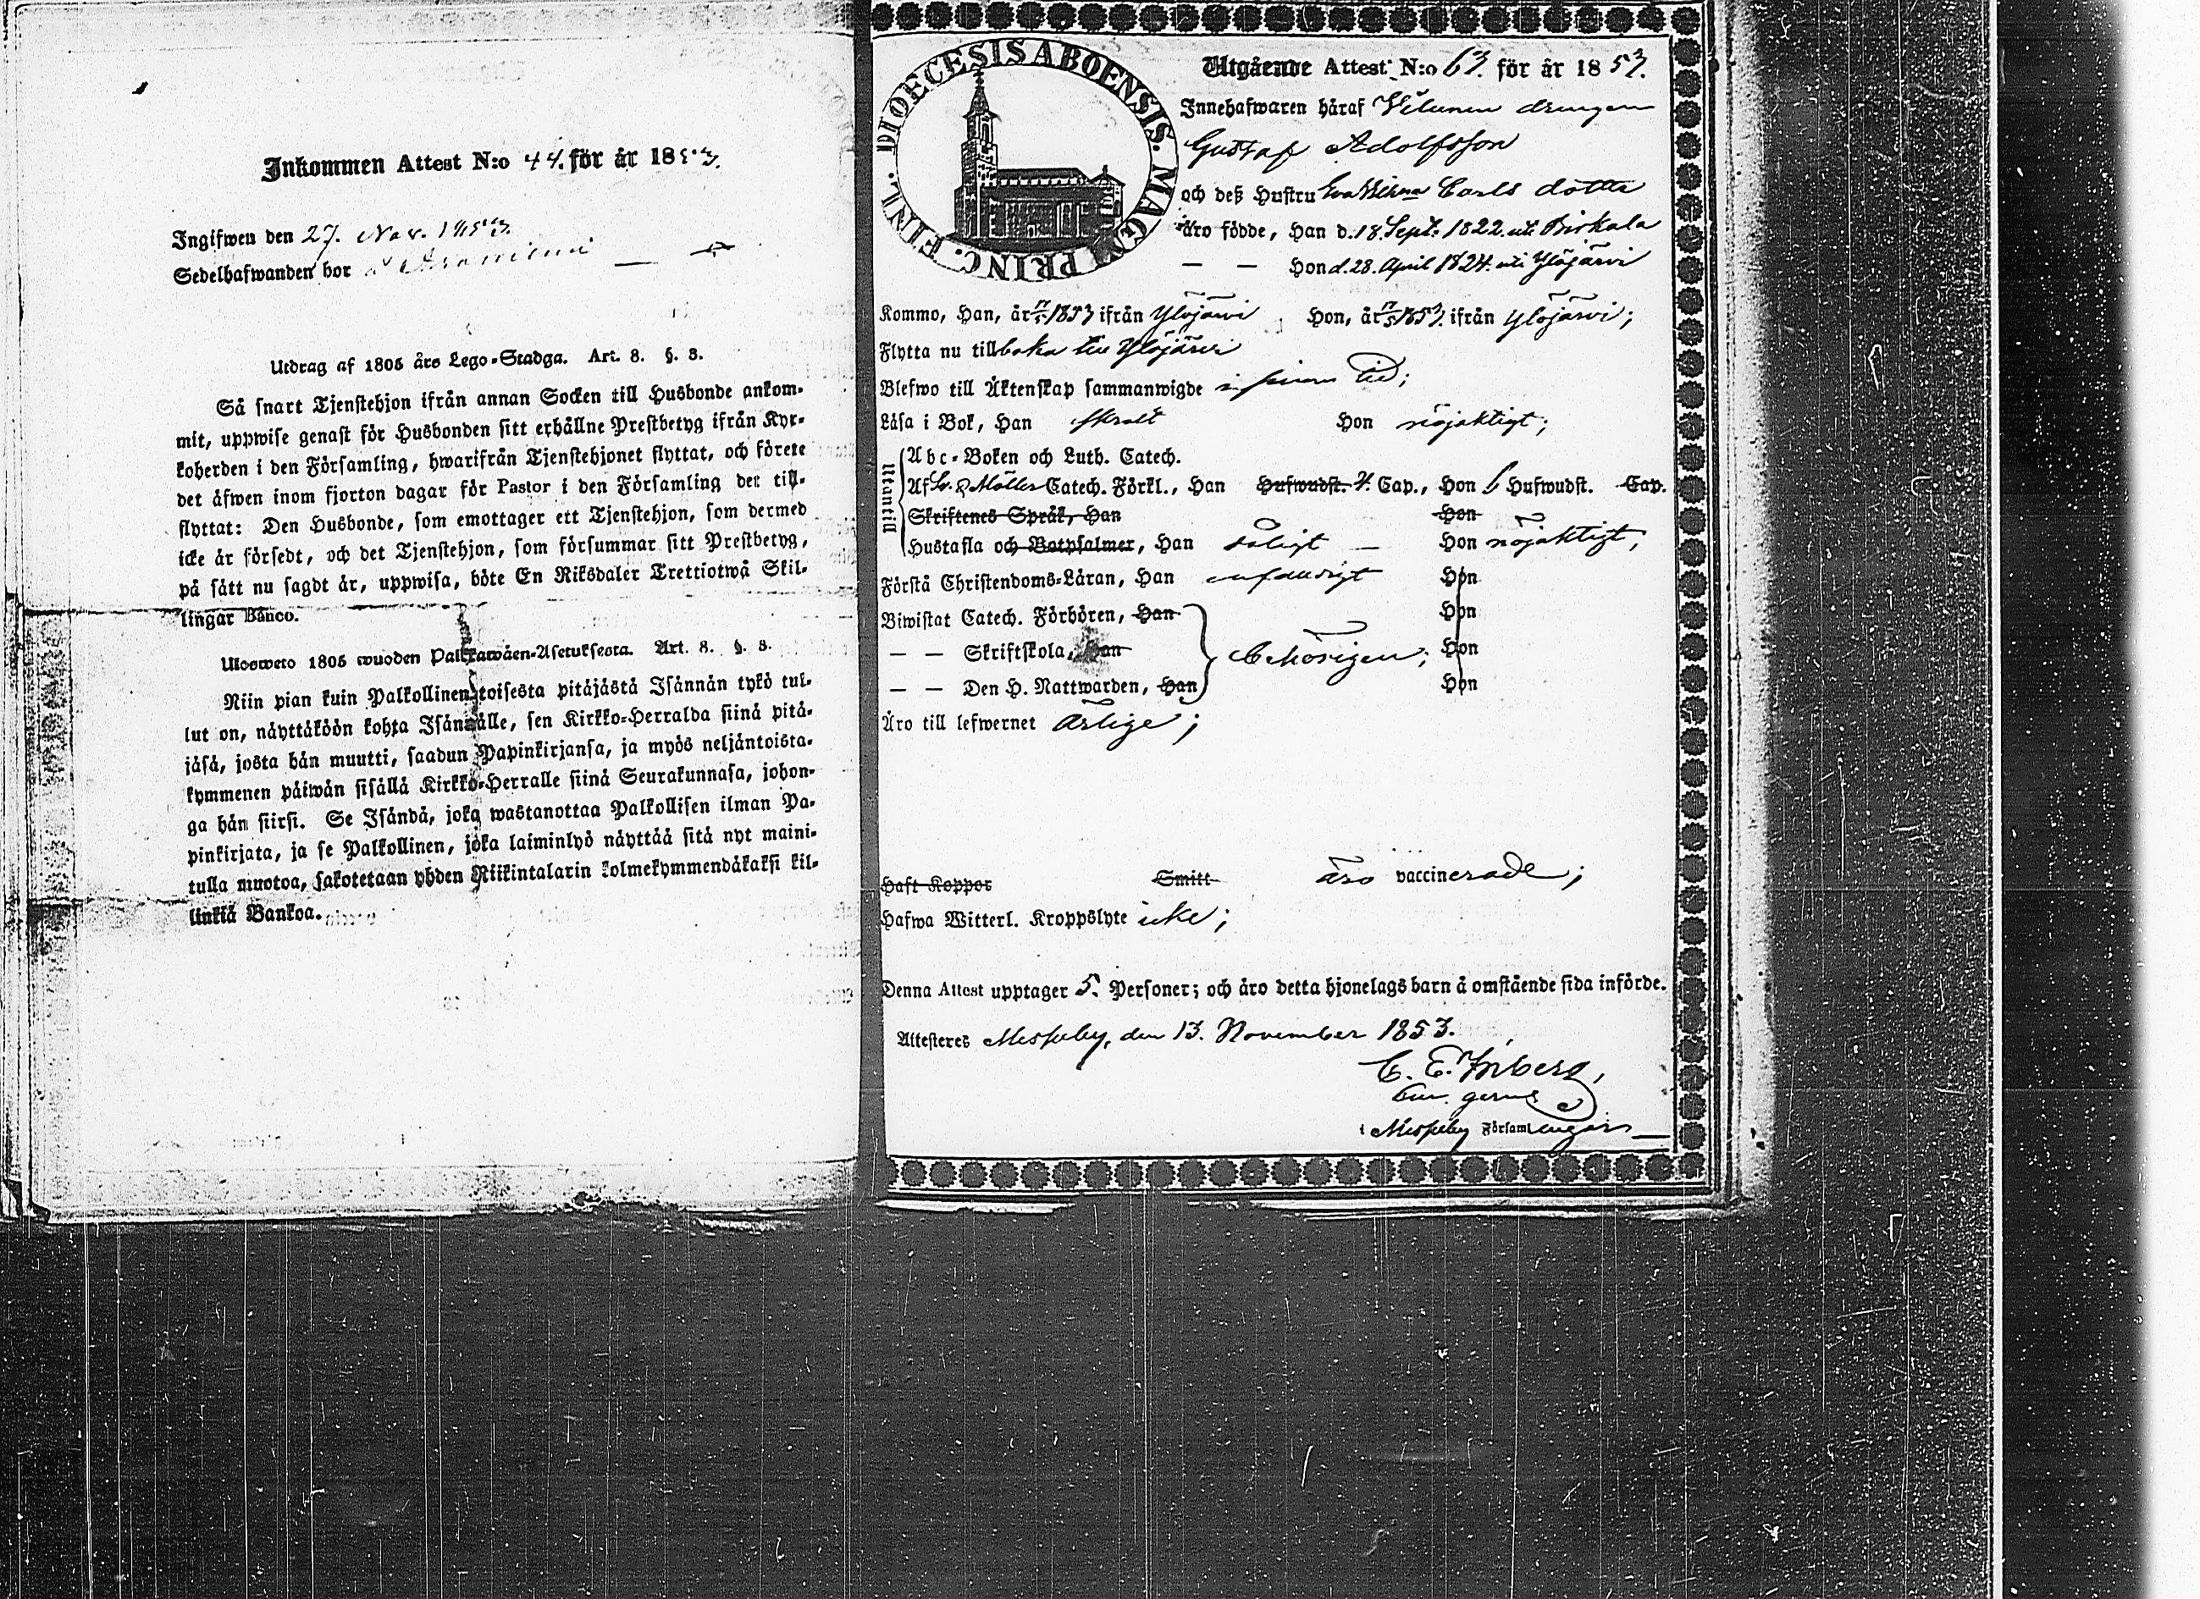 Inkommen Attest N:o 44. för år 1853.
Ingifwen den 27. Nov. 1853.
Sedelhafwanden bor
Utdrag af 1805 års Lego-Stadga. Art. 8. §. 3.
Så snart Tjenstehjon ifrån annan Socken till Husbonde ankom-
mit, uppwise genast för Husbonden sitt erhållne Prestbetyg ifrån Kyr-
koherden i den Församling, hwarifrån Tjenstehjonet flyttat, och förete
det äfwen inom fjorton dagar för Pastor i den Församling det till-
flyttat: Den Husbonde, som emottager ett Tjenstehjon, som dermed
icke är försedt, och det Tjenstehjon, som försummar sitt Prestbetyg,
på sätt nu sagdt är, uppwisa, böte En Riksdaler Trettiotwå Skil-
lingar Banco.
Ulosweto 1805 wuoden Palkkawäen-Asetuksesta. Art. 8. §. 3.
Niin pian kuin Palkollinen toisesta pitäjästä Isännän tykö tul-
lut on, näyttäköön kohta Isännälle, sen Kirkko-Herralda siinä pitä-
jäsä, josta hän muutti, saadun Papinkirjansa, ja myös neljäntoista-
kymmenen päiwän sisällä Kirkko-Herralle siinä Seurakunnasa, johon-
ga hän siirsi. Se Isändä, joka wastanottaa Palkollisen ilman Pa-
pinkirjata, ja se Palkollinen, joka laiminlyö näyttää sitä nyt maini-
tulla muotoa, sakotetaan yhden Riikintalarin kolmekymmendäkaksi kil-
linkiä Bankoa.
DIOECESIS ABOENSIS. MAGNI PRINC. FINL.
Utgående Attest N:o 63. för år 1853.
Innehafwaren häraf drengen
Gustaf Adolfsson
och deß Hustru Eva Carls dotter
äro födde, Han d. 18. Sept. 1822. uti Birkala
— — Hon d. 28. April 1824. uti Ylöjärvi
Kommo, Han, år 1853 ifrån Ylöjärvi Hon, år 1853. ifrån Ylöjärvi;
Flytta nu tillbaka till Ylöjärvi
Blefwo till Äktenskap sammanwigde i sinom tid;
Läsa i Bok, Han skralt Hon nöjaktigt;
Utantill
Abc-Boken och Luth. Catech.
Af Catech. Förkl., Han Hufwudst. 4. Cap., Hon 6 Hufwudst. Cap.
Skriftenes Språk, Han Hon
Hustafla och Botpsalmer, Han dåligt — Hon nöjaktigt;
Förstå Christendoms-Läran, Han enfaldigt Hon
Biwistat Catech. Förhören, Han Hon
— — Skriftskola, Han behörigen; Hon
— — Den H. Nattwarden, Han Hon
Äro till lefwernet ärlige;
Haft Koppor Smitt äro vaccinerade;
Hafwa Witterl. Kroppslyte icke;
Denna Attest upptager 5. Personer; och äro detta hjonelags barn å omstående sida införde.
Attesteres Messuby, den 13. November 1853.
C. E.
i Messuby Församlingar